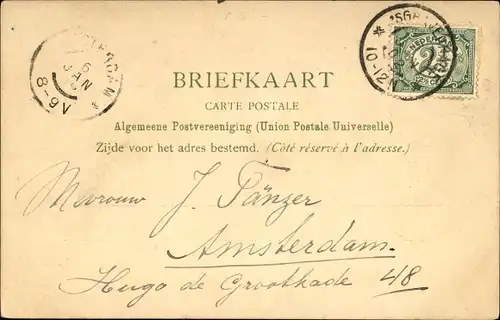 'SGRAVENHAGE
10-12N
NEDERLAND
2½
CENT
AMSTERDAM
6
JAN
8-9V
BRIEFKAART
CARTE POSTALE
Algemeene Postvereeniging (Union Postale Universelle)
Zijde voor het adres bestemd. (Côté réservé à l'adresse.)
Mevrouw J. Tänzer
Amsterdam.
Hugo de Groothade 48